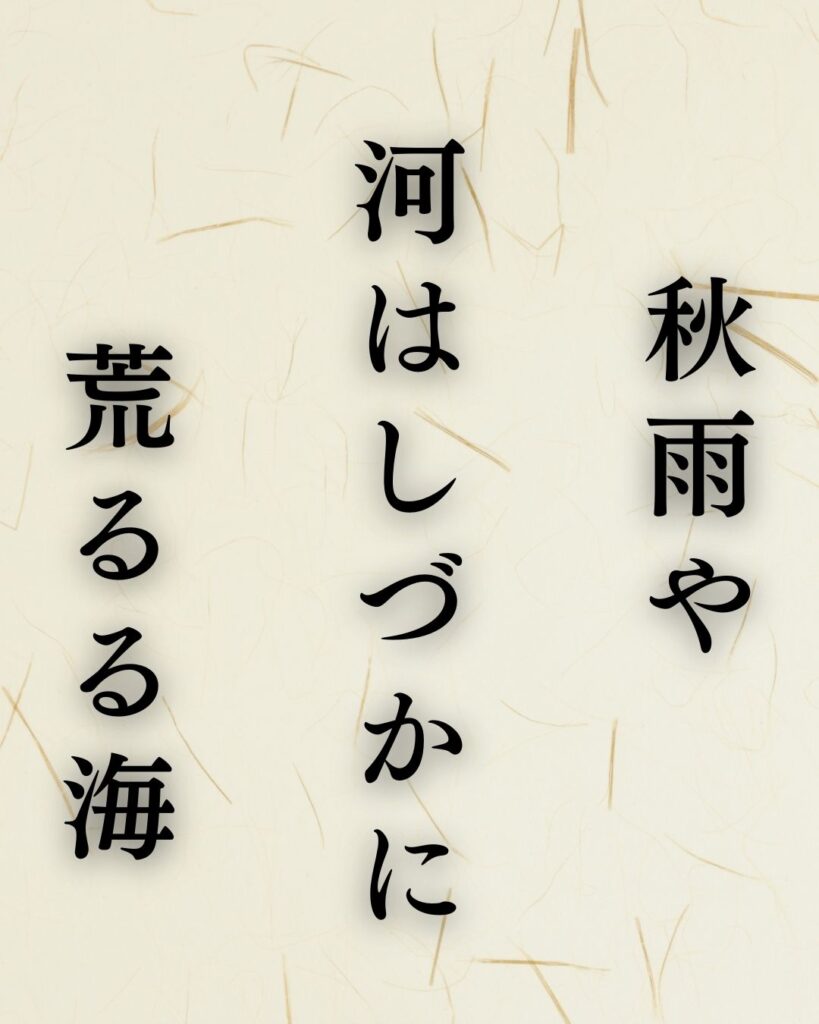 秋雨や
河はしづかに
荒るる海